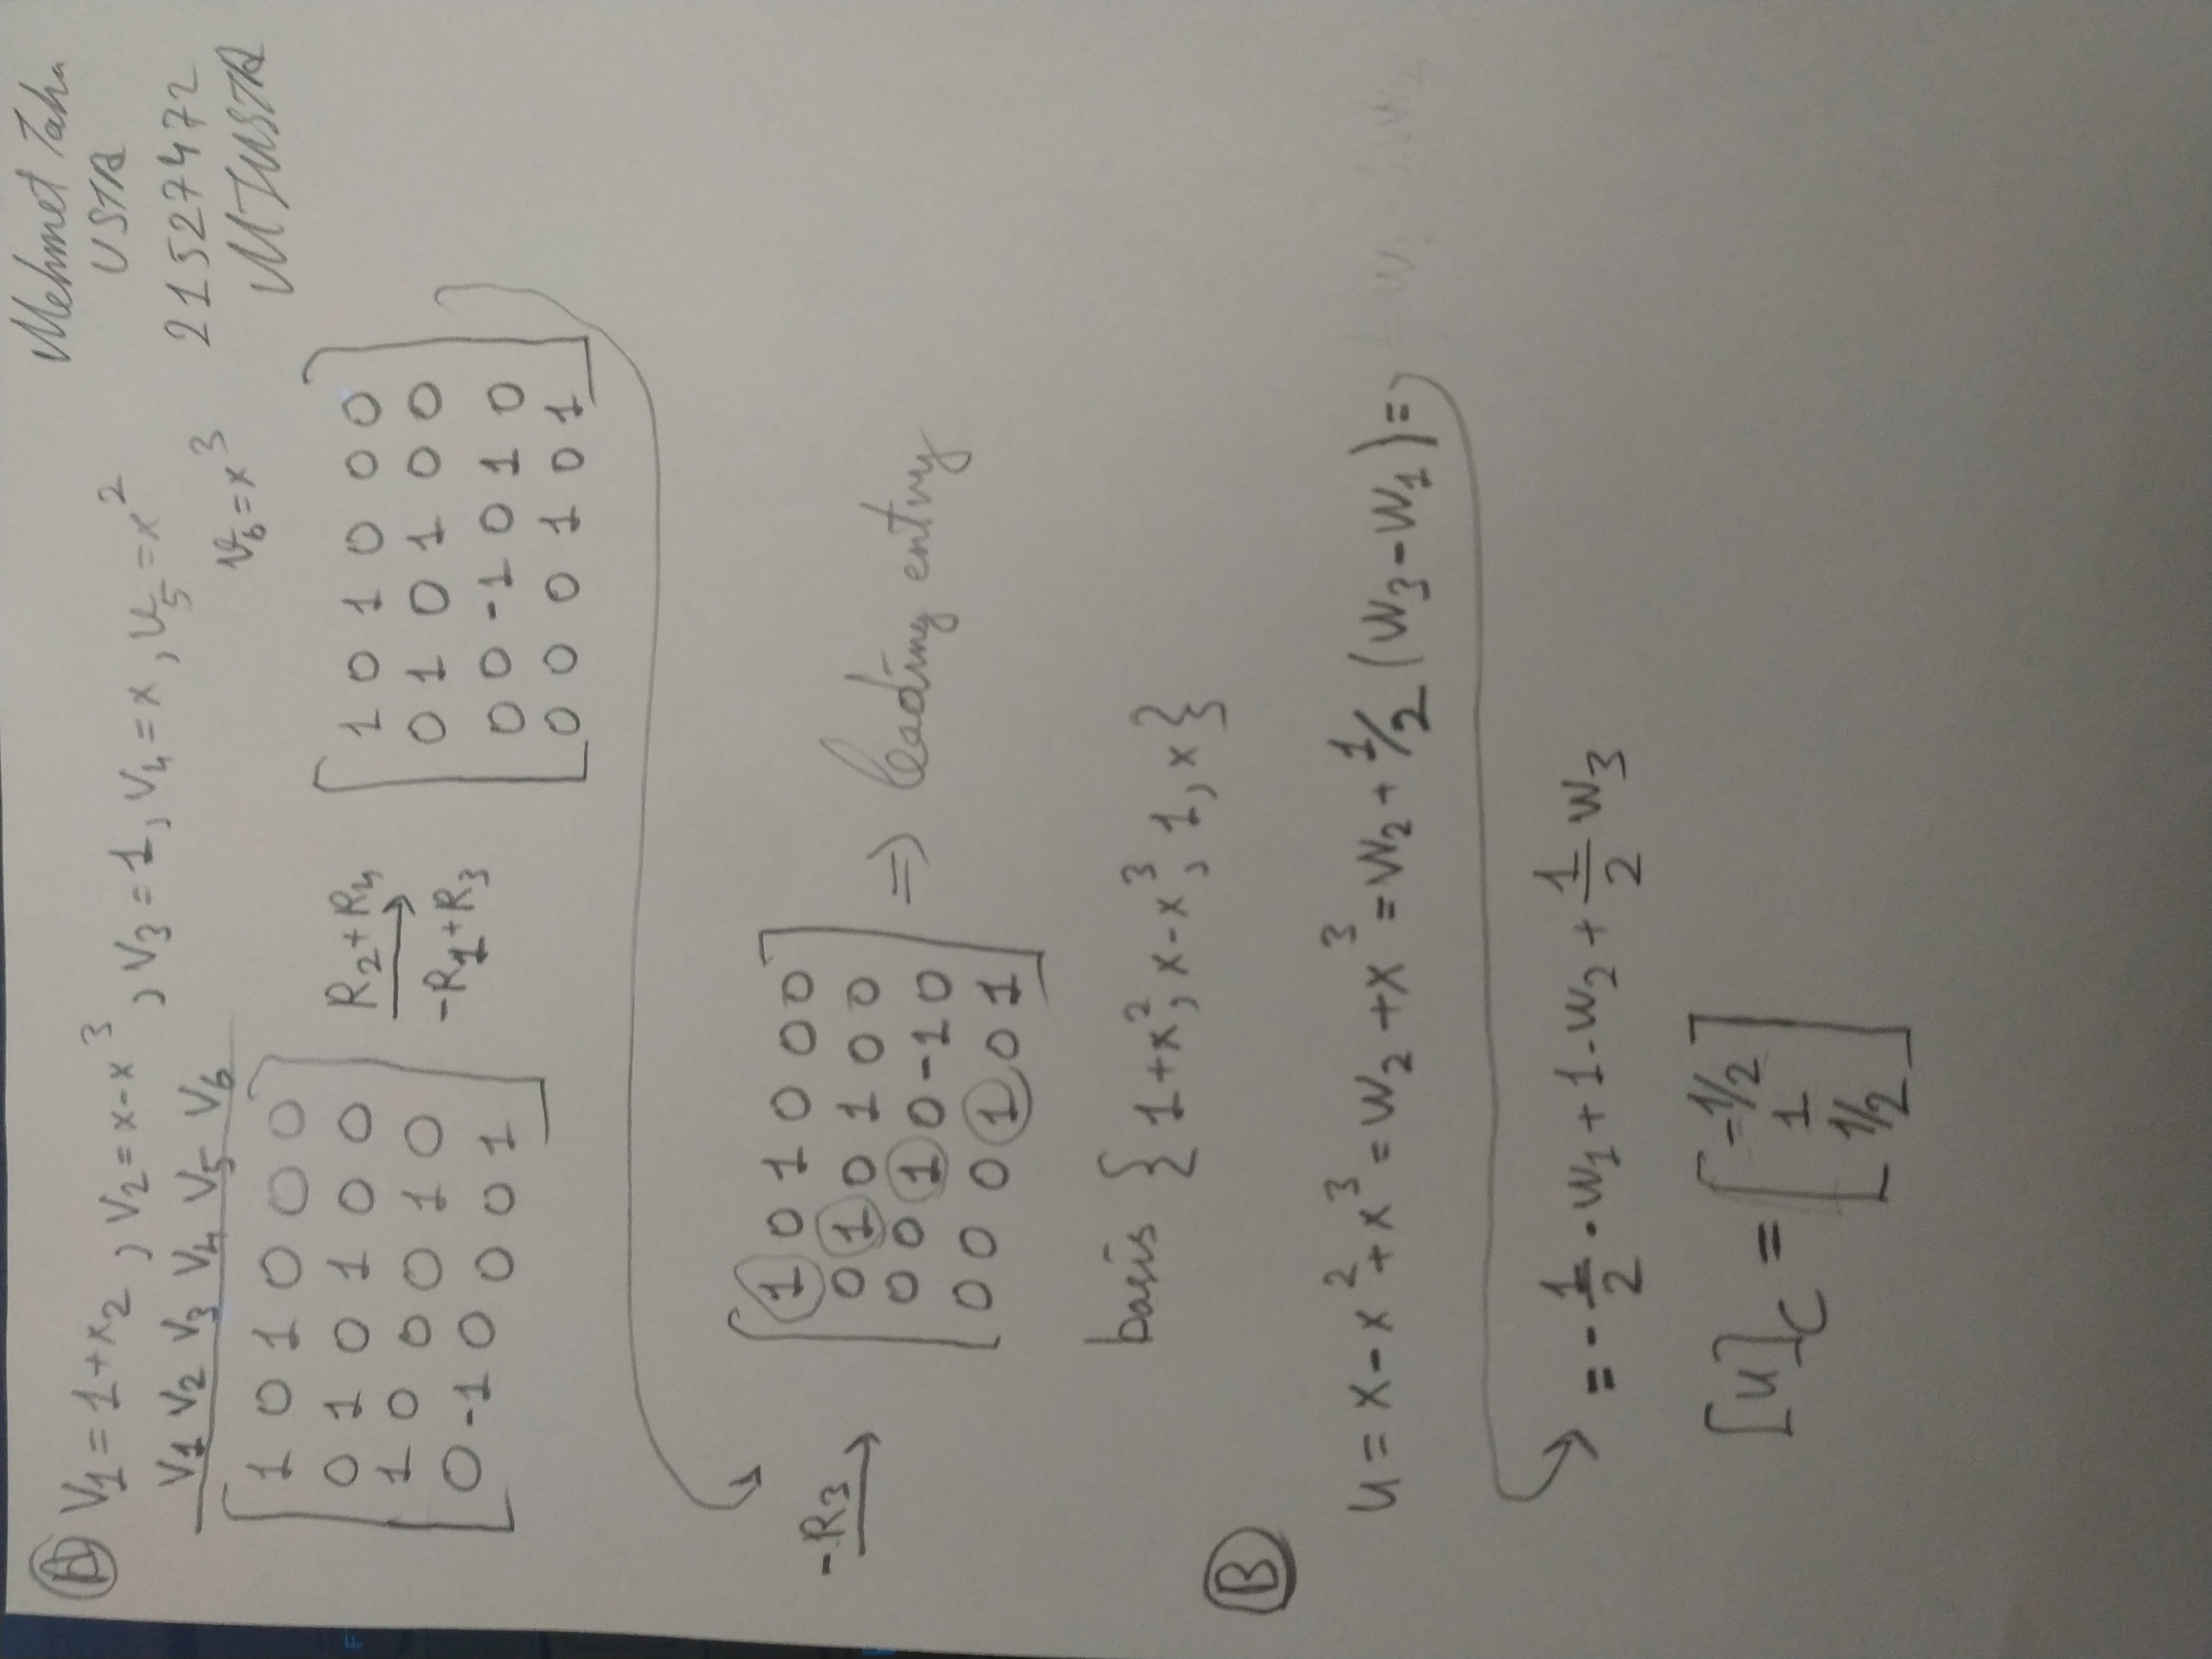 Mehmet Taha
USTA
21527472
MTUSTA
A V1 = 1+x2 , V2 = x-x^3 , V3 = 1, V4 = x , V5 = x^2
V6 = x^3
V1 V2 V3 V4 V5 V6
1 0 1 0 0 0
0 1 0 1 0 0
1 0 0 0 1 0
0 -1 0 0 0 1
R2+R4
-R1+R3
1 0 1 0 0 0
0 1 0 1 0 0
0 0 -1 0 1 0
0 0 0 1 0 1
-R3
1 0 1 0 0 0
0 1 0 1 0 0
0 0 1 0 -1 0
0 0 0 1 0 1
=> leading entry
basis { 1+x^2, x-x^3, 1, x }
B
u = x-x^2+x^3 = W2 + x^3 = W2 + 1/2 (W3-W1) =
= -1/2 . W1 + 1. W2 + 1/2 W3
[u]C = [ -1/2
1
1/2 ]